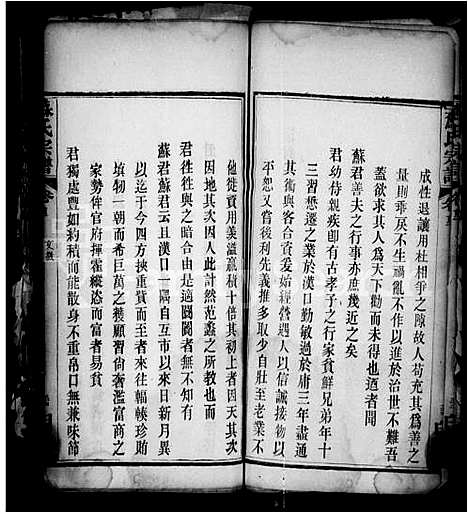 成性退讓用杜相爭之隙故人苟充其為善之
量則乖戾不生禍亂不作以進於治世不難吾
蓋欲求其人為天下勸而未得也迺者聞
蘇君善夫之行事亦庶幾近之矣
君幼侍親疾卽有古孝子之行家貧鮮兄弟年十
三習懋遷之業於漢口勤敏過於庸三年盡通
其術比長遂主會計俄自主賈麥始經營遇人以信誠接物以
平恕又嘗後利先義推多取少自壯至老業不
他徙資用美溢贏積十倍其初上者因天其次
因地其次因人此計然范蠡之所教也而
君往往與之暗合由是過闤闠者無不知有
蘇君蘇君云且漢口一隅自互市以來日新月異
以迄於今四方挾重貲而至者來往輻輳珍賂
填牣一朝而希巨萬之獲顧習尙奢濫富商之
家勢侔官府揮霍縱恣而富者易貧
君獨處豐如約積而能散身不重帛口無兼味節
蘇氏宗譜
卷
文藝